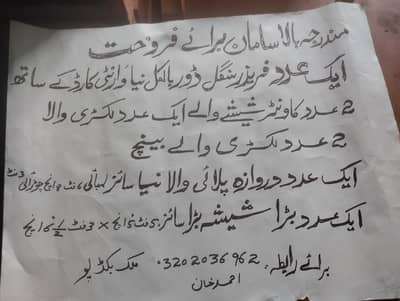 مندرجہ بالا سامان برائے فروخت
ایک عدد فریزر سنگل ڈور بالکل نیا وارنٹی کارڈ کے ساتھ
2 عدد کاونٹر شیشے والے ایک عدد لکڑی والا
2 عدد لکڑی والے بینچ
ایک عدد دروازہ پلائی والا نیا سائز لمبائی 6 فٹ 9 انچ چوڑائی 3 فٹ
ایک عدد بڑا شیشہ بڑا سائز 5 فٹ 5 انچ × 3 فٹ انچ
برائے رابطہ: 03202036962 ملک بکڈپو
احمد خان